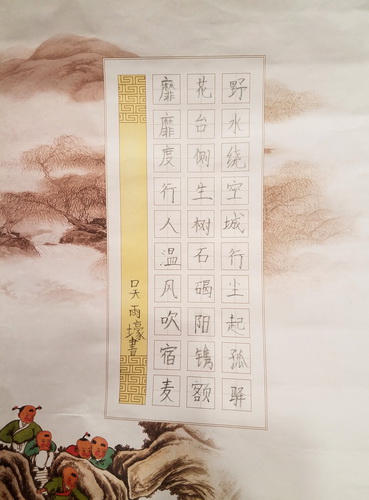 野水绕空城行尘起孤驿
花台侧生树石碣阳镌额
靡靡度行人温风吹宿麦
吴雨壕書